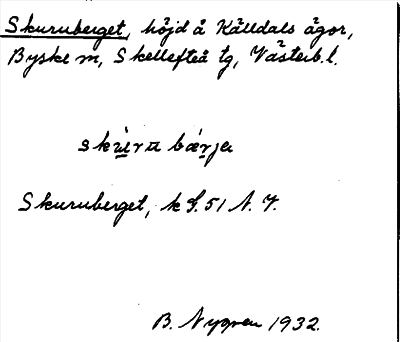 Skuruberget, höjd å Källdals ägor,
Byske sn, Skellefteå tg, Västerb.l.
Skuruberget, k
B. Nygren 1932.